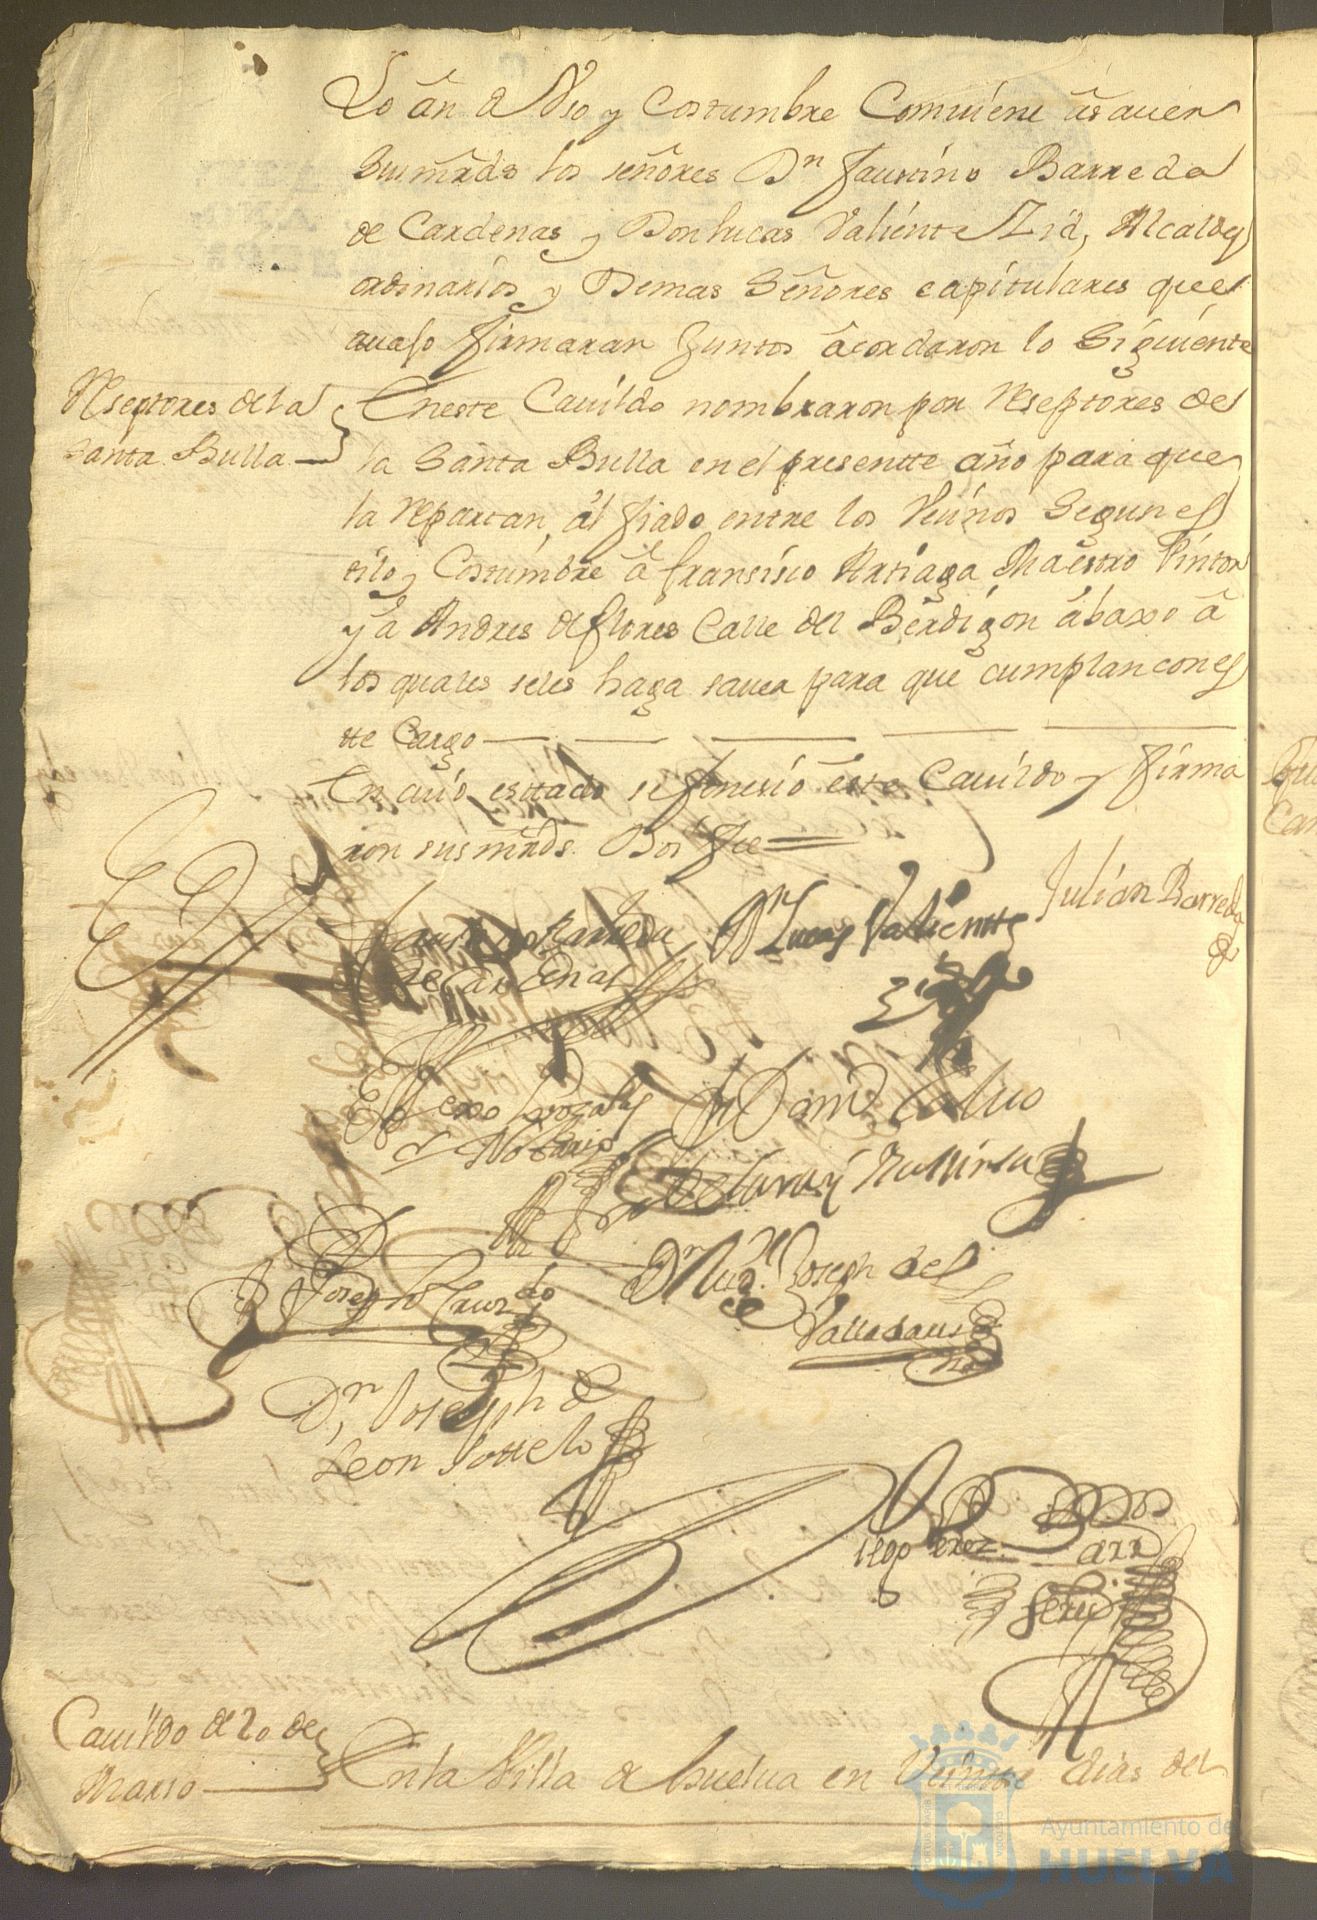 Lo an de Vso y Costumbre Combiene âsauer
Susmrds los señores Dn Faustino Barreda
de Cardenas y Don Lucas Valiente Zid, Alcaldes
ordinarios y Demas Señores capitulares que
auajo firmaran Juntos âcordaron lo Siguiente
Reseptores dela
Santa Bulla
Eneste Cauildo nombraron por Reseptores de
la Santa Bulla en el presentte año para que
la repartan, âl fiado entre los Veinos Segun es
tilo y Costumbre â Fransisco Artiaga Maestro Pintor
y â Andres de flores Calle del Berdigon âbaxo â
los quales seles haga sauer para que cumplan con es
tte Cargo
En cuio esttado se fenesio este Cauildo y firma
ron susmrds. Doi fee
Faustino Barreda
de Cardenas
Dn Lucas Valientte
Zid
Julian Barreda
Notario
Dn Joseph de
Valladares
Dn Joseph de
Leon Sottelo
Diego Perez
Cauildo de 20 de
Marso
En la Villa de Huelua en Veinte dias del
Ayuntamiento de
HUELVA